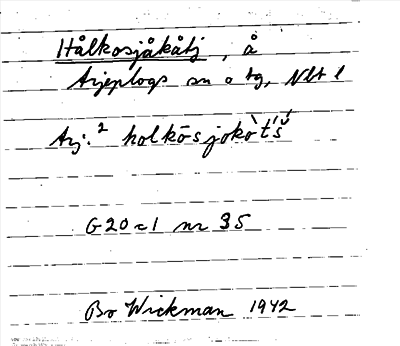 Hålkosjåkåtj, å
Arjeplogs sn o tg, Nlt l
Arj.² holkōsjokòt́š́
G20c1 nr 35
Bo Wickman 1942